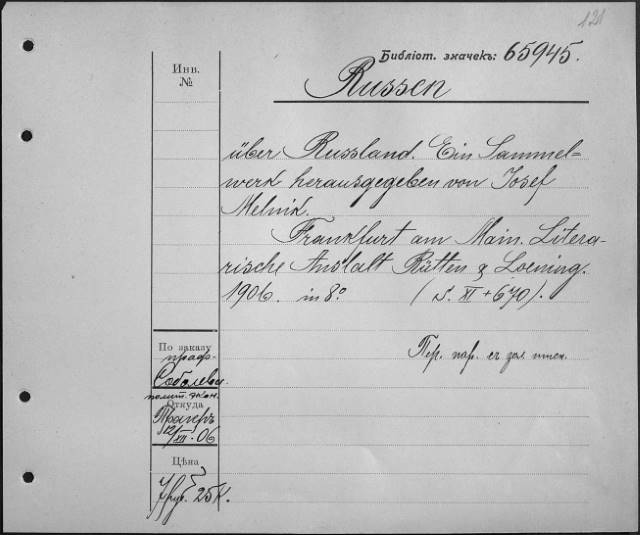 121
Библіот. значекъ: 65945.
Инв.
№
Russen
über Russland. Ein Sammel=
werk herausgegeben von Josef
Melnik.
Frankfurt am Main. Litera-
rische Anstalt Rütten & Loening.
1906. in 8º (S. XI + 670).
Пер. пар. съ зол. тисн.
По заказу
проф.
Соболева.
полит. экон.
Откуда
12/XII - 06
Цѣна
7 руб. 25 к.